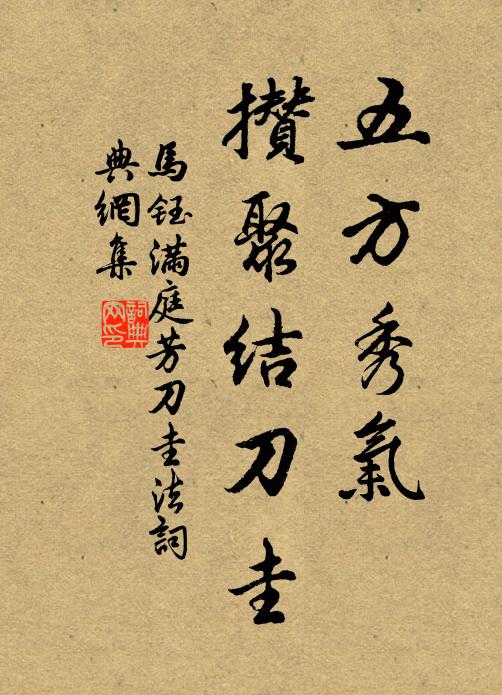 五方秀氣
攢聚結刀圭
馬鈺滿庭芳刀圭法詞
典網集
詞典
網印